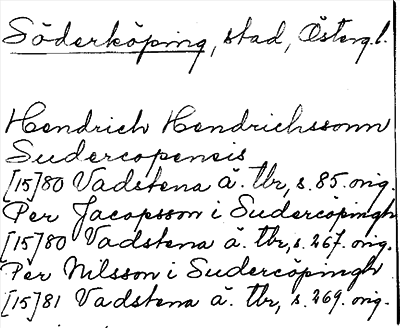 Söderköping, stad, Österg.l.
Hendrich Hendrichssonn
Sudercopensis
[15]80 Vadstena ä. Tbr, s. 85. orig.
Per Jacopsson i Sudercöpingh
[15]80 Vadstena ä. Tbr, s. 267. orig.
Per Nilsson i Sudercöpingh
[15]81 Vadstena ä. Tbr, s. 269. orig.